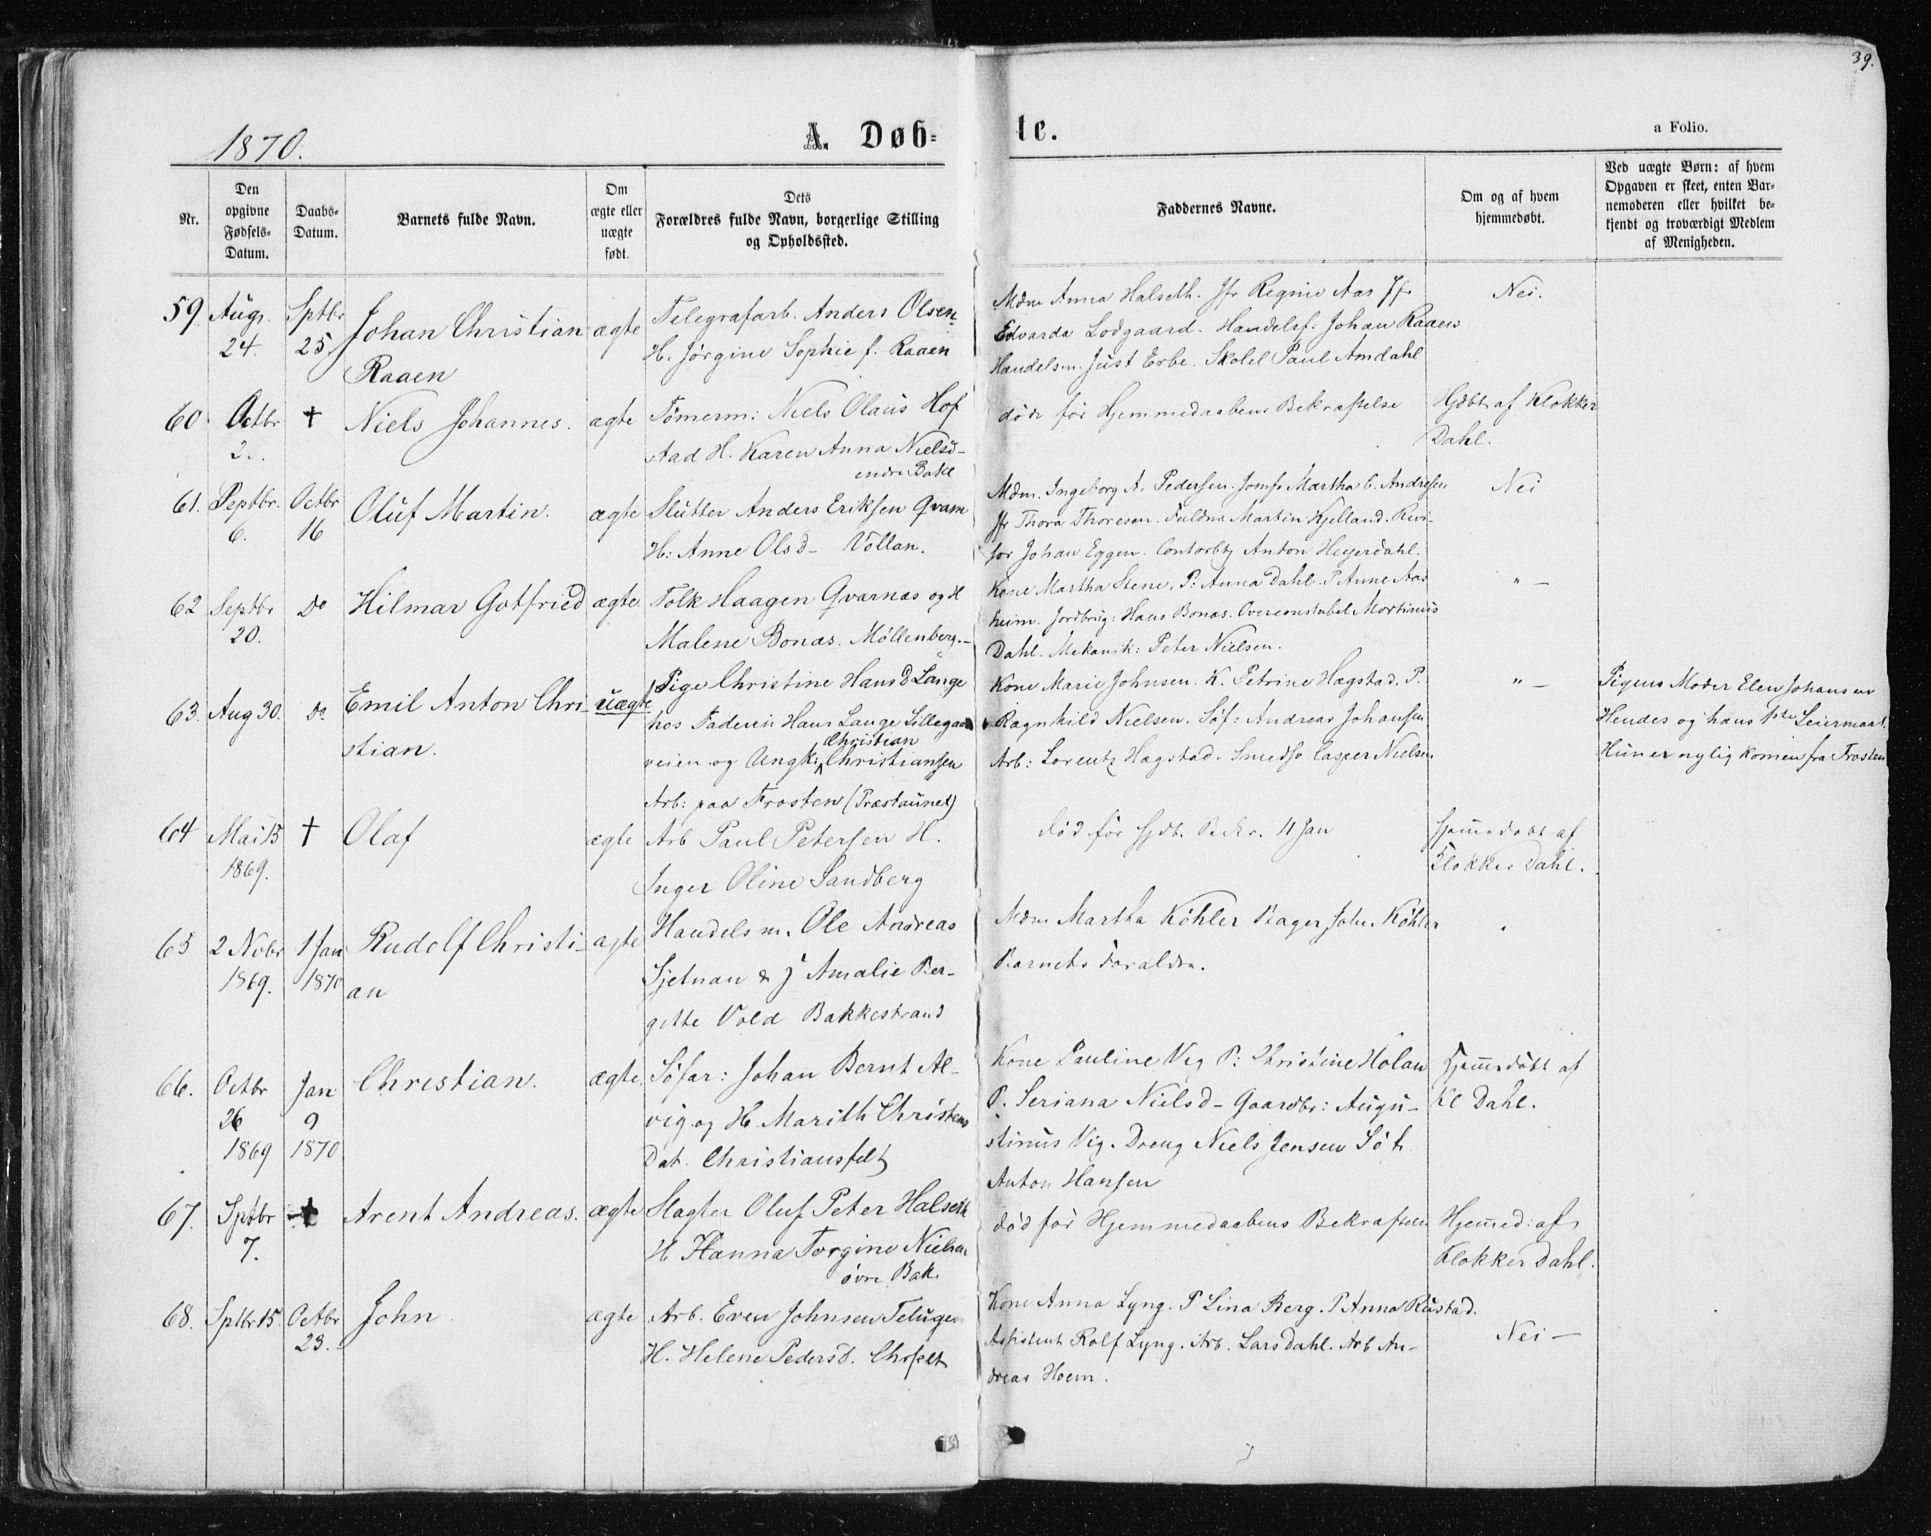 39.
1870.
A. Døb-
te.
a Folio.
Nr.
Den
opgivne
Fødsels-
Datum.
Daabs-
Datum.
Barnets fulde Navn.
Om
ægte eller
uægte
født.
Dets
Forældres fulde Navn, borgerlige Stilling
og Opholdssted.
Faddernes Navne.
Om og af hvem
hjemmedøbt.
Ved uægte Børn: af hvem
Opgaven er skeet, enten Bar-
nemoderen eller hvilket be-
kjendt og troværdigt Medlem
af Menigheden.
59. Augs. 24. Sptbr 25 Johan Christian ægte
Raaen
Telegrafarb. Anders Olsen
H. Jørgine Sophie f. Raaen
Mdm Anna Halseth. Jfr Regine Aas Jfr
Edvarda Lodgaard. Handelsf: Johan Raaen
Handelsm. Just Erbe. Skolel Paul Amdahl
Nei.
60 Octbr 2. † Niels Johannes. ægte
Tømerm: Niels Olaus Hof
stad H. Karen Anna Nielsd-
endre Bakl
døde før Hjemmedaabens Bekræftelse
Hjdbt af Klokker
Dahl.
61. Septbr. 6. Octbr 16 Oluf Martin. ægte
Slutter Anders Eriksen Qvam
H: Anne Olsd- Vollan.
Mdm. Ingeborg A. Pedersen. Jomf. Martha C. Andresen
Jfr Thora Thoresen. Fuldm Martin Kjelland. Revi-
sor Johan Eggen. Contorbtj Anton Heyerdahl.
Nei
62 Septbr 20. Do Hilmar Gotfried ægte.
Tolk Haagen Qvarnæs og H
Malene Bonæs. Møllenberg.-
Kone Martha Stene. P: Anna Dahl. P Anne Aas
heim. Jordbrug: Hans Bonæs. Overconstabel Mortinus
Dahl. Mekanik: Peter Nielsen.
" —
63. Aug 30. Do Emil Anton Chri- uægte
stian.
Pige Christine Hansd Lange
hos Faderen Hans Lange Lillegaard
veien og Ungk: Christian Christiansen
Arb: paa Frosten (Præstaunet)
Kone Marie Johnsen. K. Petrine Hagstad. P.
Ragnhild Nielsen. Søf: Andreas Johansen
Arb: Lorentz Hagstad. Smedsv Casper Nielsen
" —
Pigens Moder Elen Johansen
Hendes og hans 1ste Leiermaal.
Hun er nylig komen fra Frosten
64 Mai 15 1869. † Olaf ægte
Arb Paul Petersen H.
Inger Oline Sandberg
død før Hjdt. Bekr. 11 Jan
Hjemedøbt af
Klokker Dahl.
65 2 Nobr 1869. 1 Jan 1870 Rudolf Christi- ægte
an
Handelsm. Ole Andreas
Sjetnan & J Amalie Ber-
gitte Vold Bakkestrand
Mdm Martha Köhler Bager Joh. Köhler
Barnets Foraldre.
66. Octbr 26 1869 Jan 9 1870 Christian. ægte.
Søfar: Johan Bernt Al-
vig og H. Marith Christens
Dat. Christiansfelt
Kone Pauline Vig P: Christine Holan
P. Seriana Nielsd- Gaardbr: Augu-
stinus Vig. Dreng Niels Jensen Søf.
Anton Hansen
Hjemedøbt af
Kl Dahl.
67. Sptbr 7. † Arent Andreas. ægte
Slagter Oluf Peter Halseth
H Hanna Torgine Nielsen
øvre Bak.
død før Hjemmedaabens Bekræftelse
Hjemed: af
Klokker Dahl.
68. Sptbr 15. Octbr 23. John. ægte
Arb. Even Johnsen Teluge
H. Helene Pedersd. Chrfelt
Kone Anna Lyng. P Lina Berg. P Anna Rustad.
Assistent Rolf Lyng. Arb. Lars Dahl. Arb An-
dreas Hoem.
Nei —